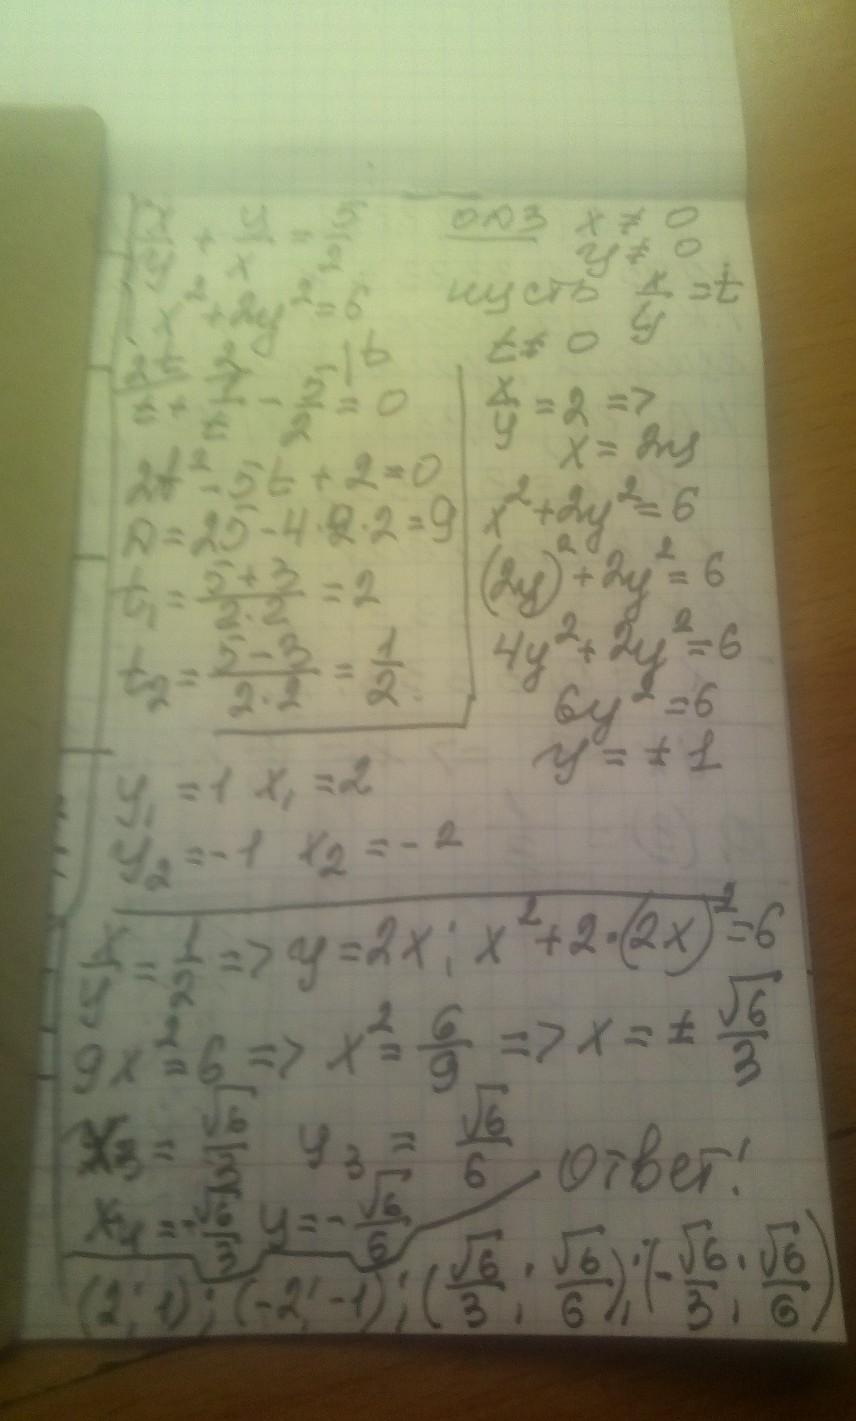 x/y + y/x = 5/2   ОДЗ x ≠ 0
y ≠ 0
x² + 2y² = 6   пусть x/y = t
t ≠ 0
t + 1/t - 5/2 = 0
2t² - 5t + 2 = 0
D = 25 - 4·2·2 = 9
t₁ = (5+3)/(2·2) = 2
t₂ = (5-3)/(2·2) = 1/2
x/y = 2 =>
x = 2y
x² + 2y² = 6
(2y)² + 2y² = 6
4y² + 2y² = 6
6y² = 6
y = ± 1
y₁ = 1 x₁ = 2
y₂ = -1 x₂ = -2
x/y = 1/2 => y = 2x; x² + 2·(2x)² = 6
9x² = 6 => x² = 6/9 => x = ± √6/3
x₃ = √6/3 y₃ = √6/6
x₄ = -√6/3 y = -√6/6 Ответ:
(2; 1); (-2; -1); (√6/3; √6/6); (-√6/3; √6/6)